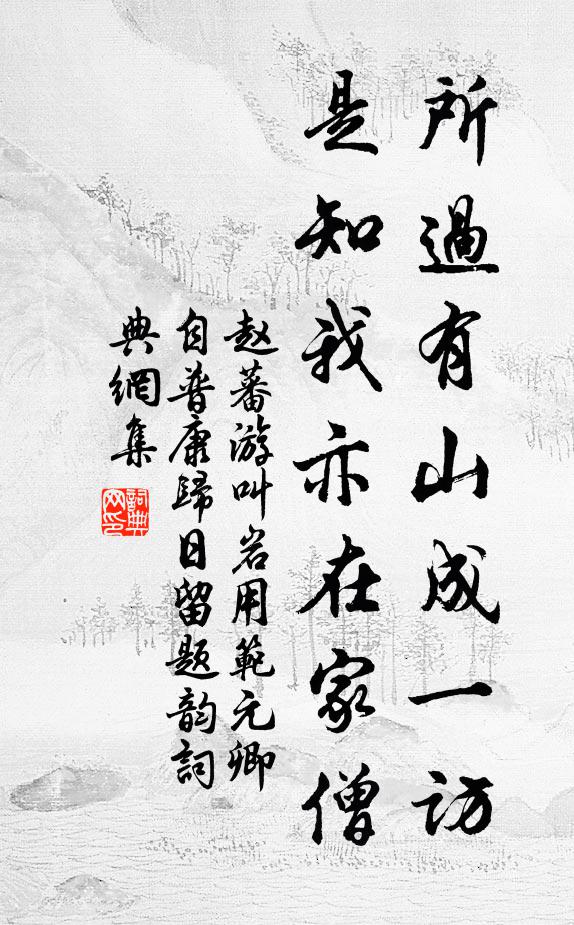 所過有山成一访
是知我亦在家僧
赵蕃游叫岩用範元卿
自普康歸日留题韵詞
典網集
詞典网印